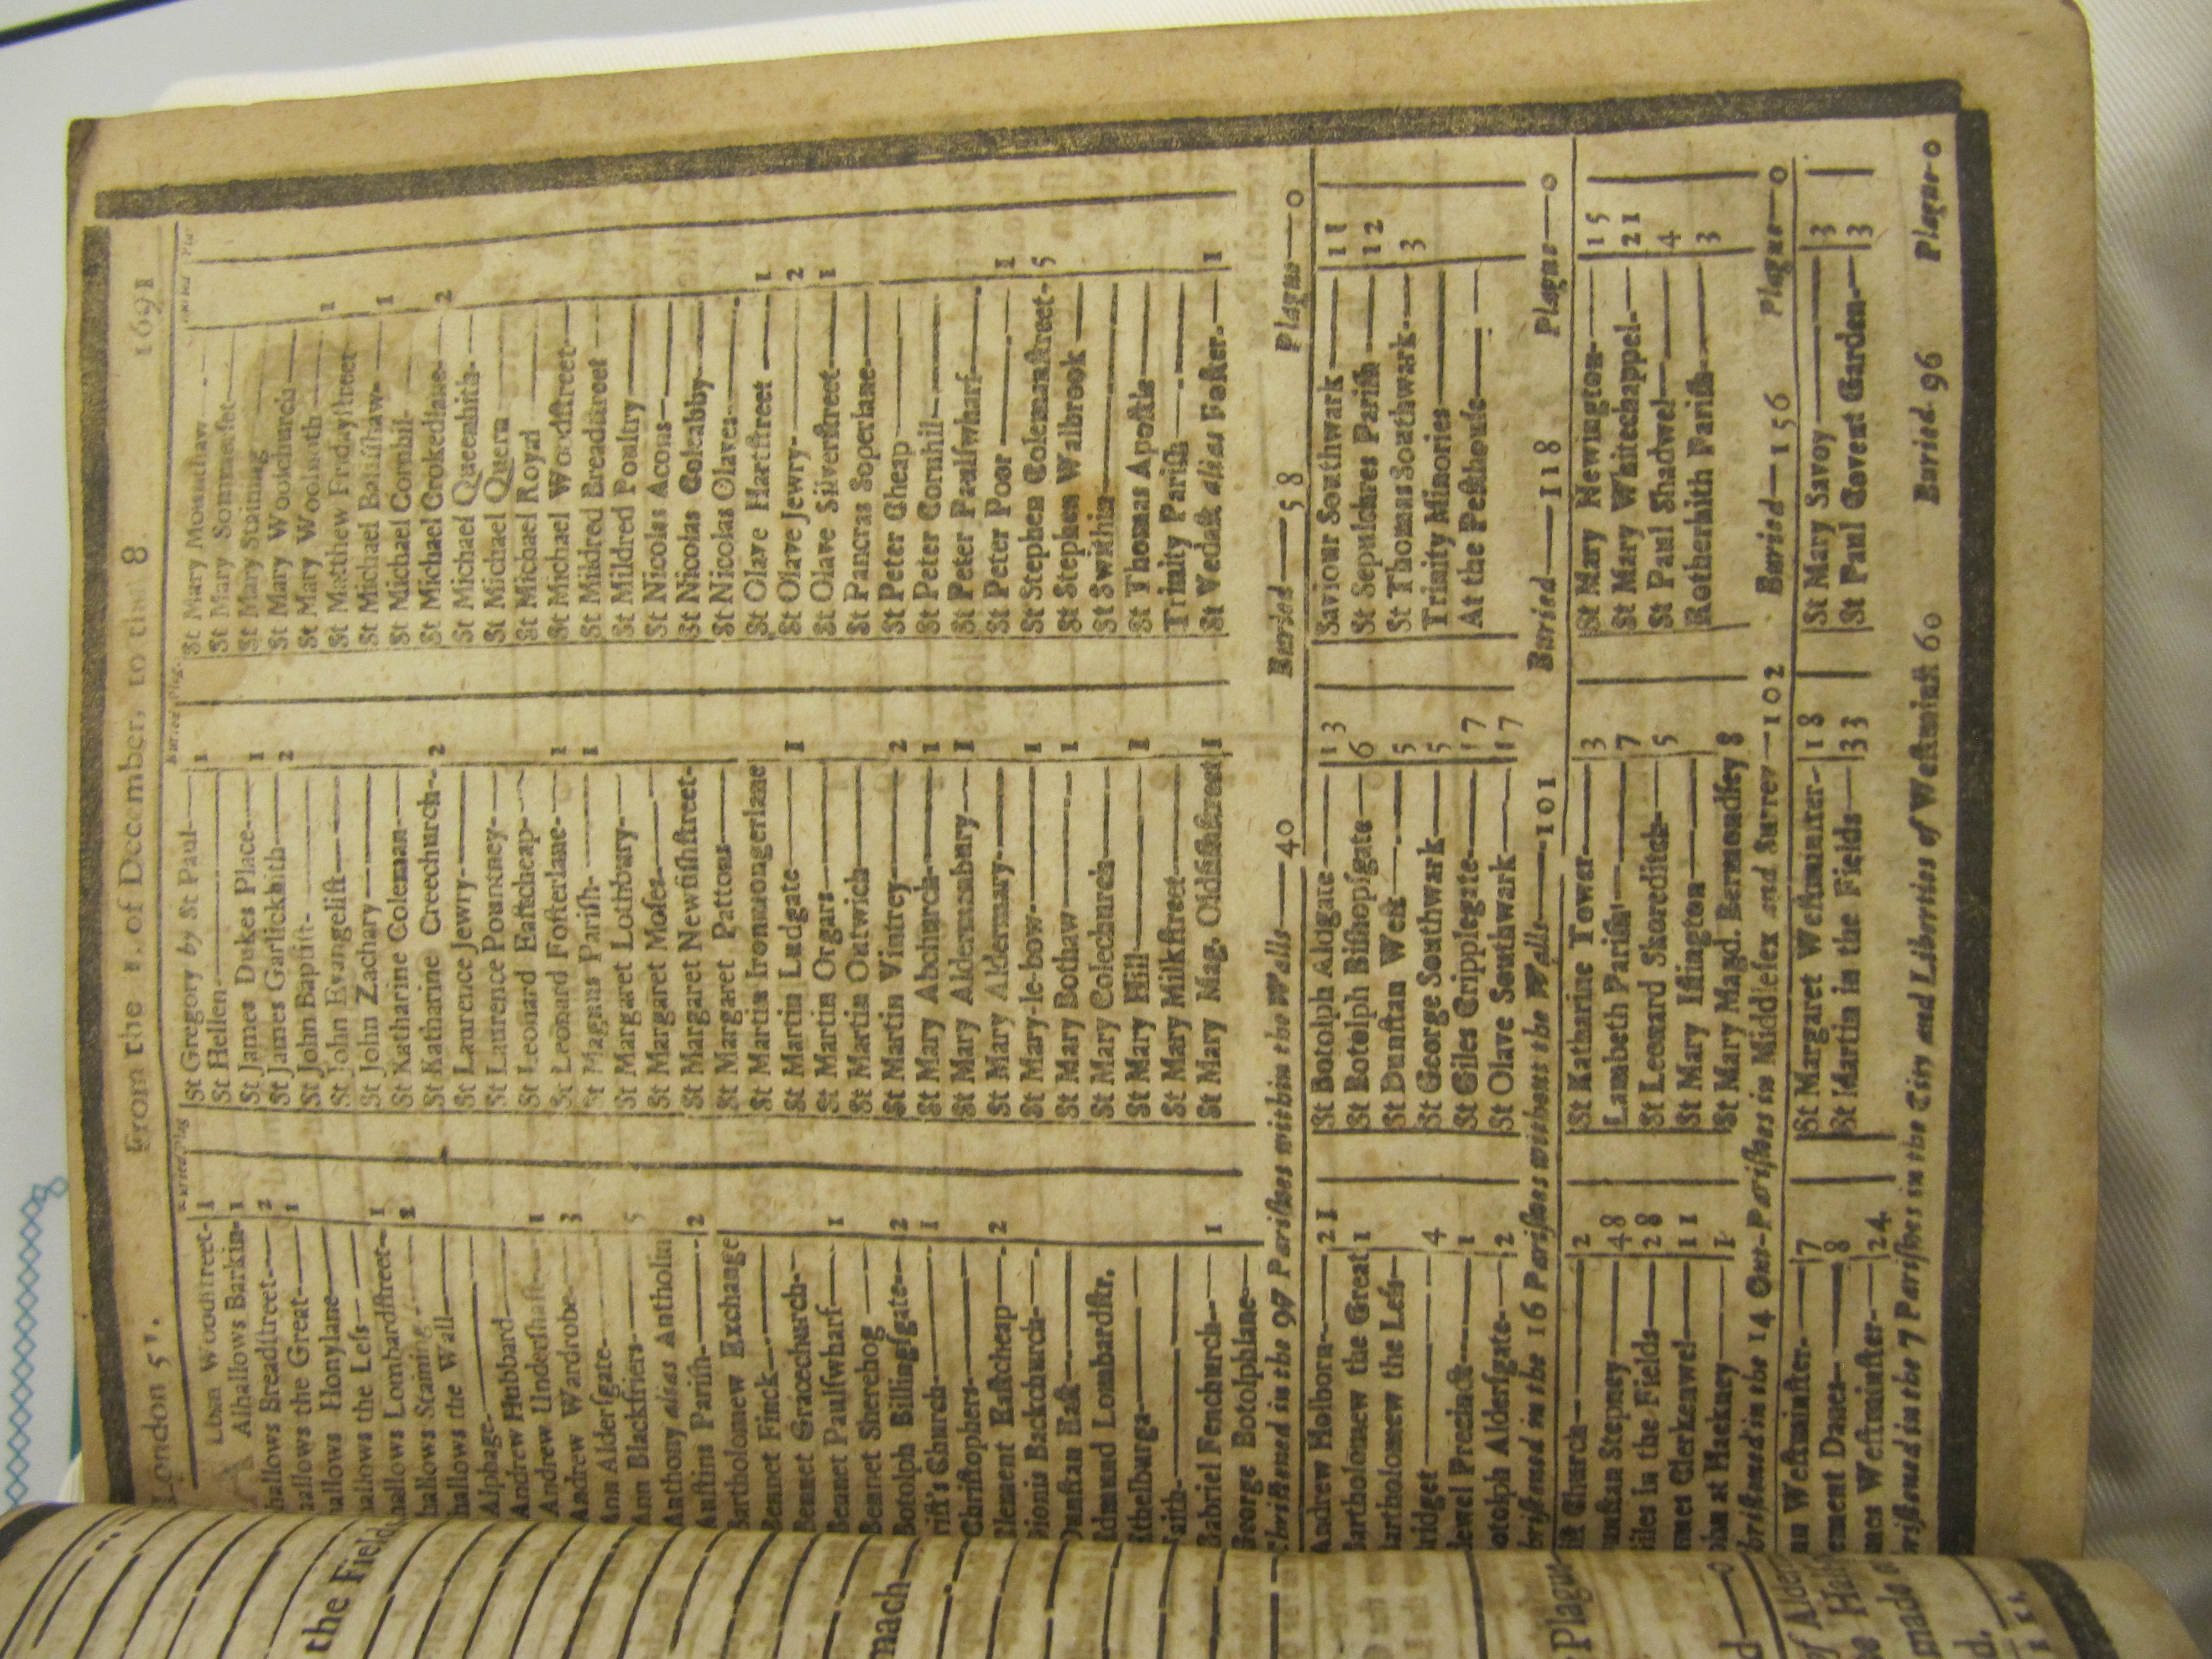 London 51. From the 1. of December, to the 8. 1691
Buried Plag
Woodstreet- 1
Alhallows Barkin- 1
hallows Breadstreet— 2
hallows the Great— 1
hallows Honylane—
hallows the Less—
hallows Lombardstreet- 1
hallows Staining— 2
hallows the Wall—
Alphage—
Andrew Hubbard—
Andrew Undershaft— 1
Andrew Wardrobe— 3
Ann Aldersgate—
Ann Blackfriers— 5
Anthony alias Antholin
Austins Parish— 2
Bartholomew Exchange
Bennet Finck—
Bennet Gracechurch-
Bennet Paulswharf— 1
Bennet Sherehog—
Botolph Billingsgate— 2
rist's Church— 1
Christophers—
lement Eastcheap— 2
ionis Backchurch—
unstan East—
dmund Lombardstr.
thelburga—
aith—
abriel Fenchurch— 1
George Botolphlane—
Buried Plag.
St Gregory by St Paul— 1
St Hellen—
St James Dukes Place— 1
St James Garlickhith— 2
St John Baptist-
St John Evangelist—
St John Zachary—
St Katharine Coleman—
St Katharine Creechurch- 2
St Laurence Jewry—
St Laurence Pountney—
St Leonard Eastcheap—
St Leonard Fosterlane- 1
St Magnus Parish- 1
St Margaret Lothbury—
St Margaret Moses—
St Margaret Newfishstreet-
St Margaret Pattons—
St Martin Ironmongerlane
St Martin Ludgate— 1
St Martin Orgars—
St Martin Outwich—
St Martin Vintrey— 2
St Mary Abchurch— 1
St Mary Aldermanbury— 1
St Mary Aldermary—
St Mary-le-bow— 1
St Mary Bothaw— 1
St Mary Colechurch—
St Mary Hill— 1
St Mary Milkstreet—
St Mary Mag. Oldfishstreet 1
St Mary Mounthaw—
St Mary Sommerset—
St Mary Staining—
St Mary Woolchurch—
St Mary Woolnoth— 1
St Matthew Fridaystreet-
St Michael Bassishaw- 1
St Michael Cornhil-
St Michael Crokedlane- 2
St Michael Queenhith-
St Michael Quern
St Michael Royal
St Michael Woodstreet—
St Mildred Breadstreet
St Mildred Poultry—
St Nicolas Acons—
St Nicolas Coleabby—
St Nicolas Olaves-
St Olave Hartstreet— 1
St Olave Jewry- 2
St Olave Silverstreet— 1
St Pancras Soperlane—
St Peter Cheap—
St Peter Cornhil—
St Peter Paulswharf—
St Peter Poor— 1
St Stephen Colemanstreet- 5
St Stephen Walbrook—
St Swithin—
St Thomas Apostle—
Trinity Parish—
St Vedast alias Foster.— 1
Christened in the 97 Parishes within the Walls—40 Buried—58 Plague—0
Andrew Holborn— 21
Bartholomew the Great 1
Bartholomew the Less—
ridget— 4
ewel Precinct— 1
otolph Aldersgate- 2
St Botolph Aldgate— 13
St Botolph Bishopsgate— 6
St Dunstan West— 5
St George Southwark— 5
St Giles Cripplegate— 17
St Olave Southwark— 17
Saviour Southwark— 11
St Sepulchres Parish— 12
St Thomas Southwark— 3
Trinity Minories—
At the Pesthouse—
hristened in the 16 Parishes without the Walls—101 Buried—118 Plague—0
ist Church— 2
unstan Stepney— 48
iles in the Fields— 28
mes Clerkenwel— 11
ohn at Hackney— 1
St Katharine Tower— 3
Lambeth Parish— 7
St Leonard Shoreditch— 5
St Mary Islington—
St Mary Magd. Bermondsey 8
St Mary Newington— 15
St Mary Whitechappel— 21
St Paul Shadwel— 4
Rotherhith Parish— 3
hristened in the 14 Out-Parishes in Middlesex and Surrey—102 Buried—156 Plague—0
nn Westminster— 7
ement Danes— 8
mes Westminster— 24
St Margaret Westminster- 18
St Martin in the Fields— 33
St Mary Savoy— 3
St Paul Covent Garden— 3
hristened in the 7 Parishes in the City and Liberties of Westminst 60 Buried 96 Plague—0
the Field
mach—
Plague
of Alder
made